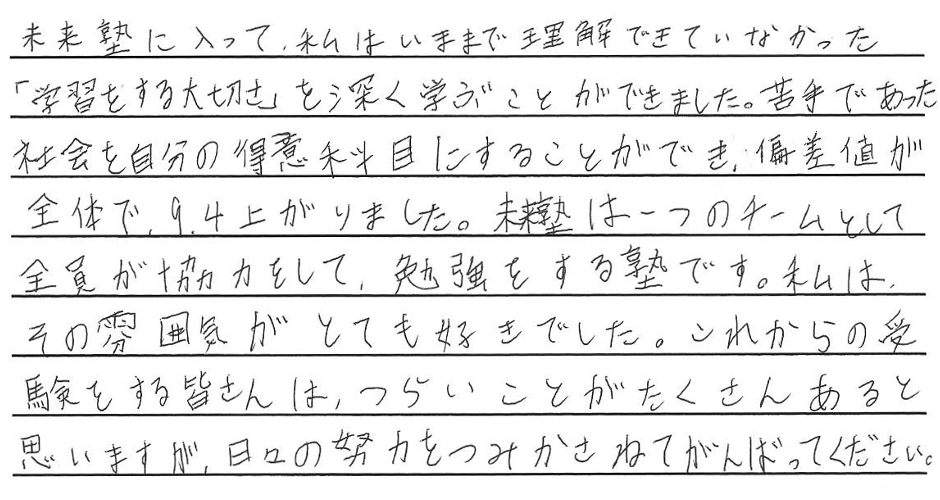 未来塾に入って、私はいままで理解できていなかった
「学習をする大切さ」をう深く学ぶことができました。苦手であった
社会を自分の得意科目にすることができ、偏差値が
全体で、9.4上がりました。未来塾は一つのチームとして
全員が協力をして、勉強をする塾です。私は、
その雰囲気がとても好きでした。これからの受
験をする皆さんは、つらいことがたくさんあると
思いますが、日々の努力をつみかさねてがんばってください。